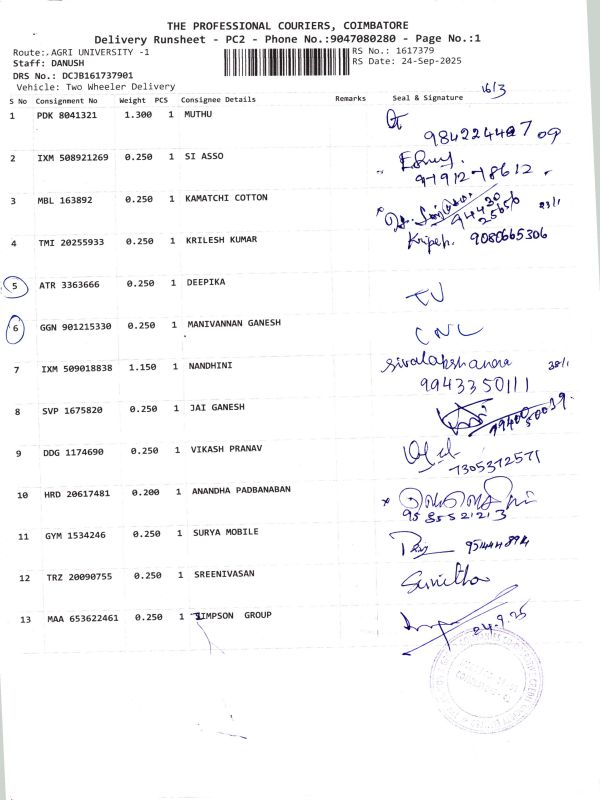 THE PROFESSIONAL COURIERS, COIMBATORE
Delivery Runsheet - PC2 - Phone No.:9047080280 - Page No.:1
Route:.AGRI UNIVERSITY -1 RS No.: 1617379
Staff: DANUSH RS Date: 24-Sep-2025
DRS No.: DCJB161737901
Vehicle: Two Wheeler Delivery
16/3
S No Consignment No Weight PCS Consignee Details Remarks Seal & Signature
1 PDK 8041321 1.300 1 MUTHU
2 IXM 508921269 0.250 1 SI ASSO
9791278612
3 MBL 163892 0.250 1 KAMATCHI COTTON
94430 25656
4 TMI 20255933 0.250 1 KRILESH KUMAR
9080665306
5 ATR 3363666 0.250 1 DEEPIKA
6 GGN 901215330 0.250 1 MANIVANNAN GANESH
7 IXM 509018838 1.150 1 NANDHINI
9943350111
8 SVP 1675820 0.250 1 JAI GANESH
9 DDG 1174690 0.250 1 VIKASH PRANAV
7305372571
10 HRD 20617481 0.200 1 ANANDHA PADBANABAN
9585521213
11 GYM 1534246 0.250 1 SURYA MOBILE
12 TRZ 20090755 0.250 1 SREENIVASAN
Sunitha
13 MAA 653622461 0.250 1 SIMPSON GROUP
24.9.25